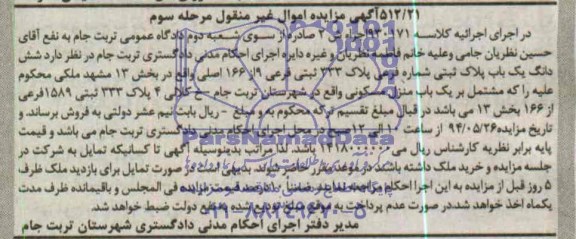 ۵۱۲/۲۱ آگهی مزایده اموال غیر منقول مرحله سوم
در اجرای اجرائیه کلاسه ۹۳۰۹۷۱ اجراء ش ۲ صادره از سوی شعبه دوم دادگاه عمومی تربت جام به نفع آقای
حسین نظریان جامی وعلیه خانم نظریان و غیره دایره اجرای احکام مدنی دادگستری تربت جام در نظر دارد شش
دانگ یک باب پلاک ثبتی شماره فرعی پلاک ۳۳۳ ثبتی فرعی ۱۹از ۱۶۶ اصلی واقع در بخش ۱۳ مشهد ملکی محکوم
علیه را که مشتمل بر یک باب منزل مسکونی واقع در شهرستان تربت جام – خ کلالی ۴ پلاک ۳۳۳ ثبتی ۱۵۸۹فرعی
از ۱۶۶ بخش ۱۳ می باشد در قبال مبلغ تقسیم ترک محکوم به و مبلغ – ریال بابت نیم عشر دولتی به فروش برساند. و
تاریخ مزایده۹۴/۰۵/۲۶ از ساعت ۱۰ الی ۱۲صبح در محل اجرای احکام مدنی دادگستری تربت جام می باشد و قیمت
پایه برابر نظریه کارشناس ریال می باشد لذا مراتب بدینوسیله آگهی تا کسانیکه تمایل به شرکت در
جلسه مزایده و خرید ملک داشته باشند درموعد مقرر حاضر شوند. بدیهی است در صورت تمایل برای بازدید ملک ظرف
۵ روز قبل از مزایده به این اجرا احکام مراجعه نمایند. ضمناً ۱۰درصد قیمت مزایده فی المجلس و باقیمانده ظرف مدت
یکماه اخذ خواهد شد.در صورت عدم پرداخت به موقع مبلغ تودیع شده به نفع دولت ضبط خواهد شد.
مدیر دفتر اجرای احکام مدنی دادگستری شهرستان تربت جام
ParsNamadData
۰۲۱-۸۸۳۴۹۶۷۰-۵